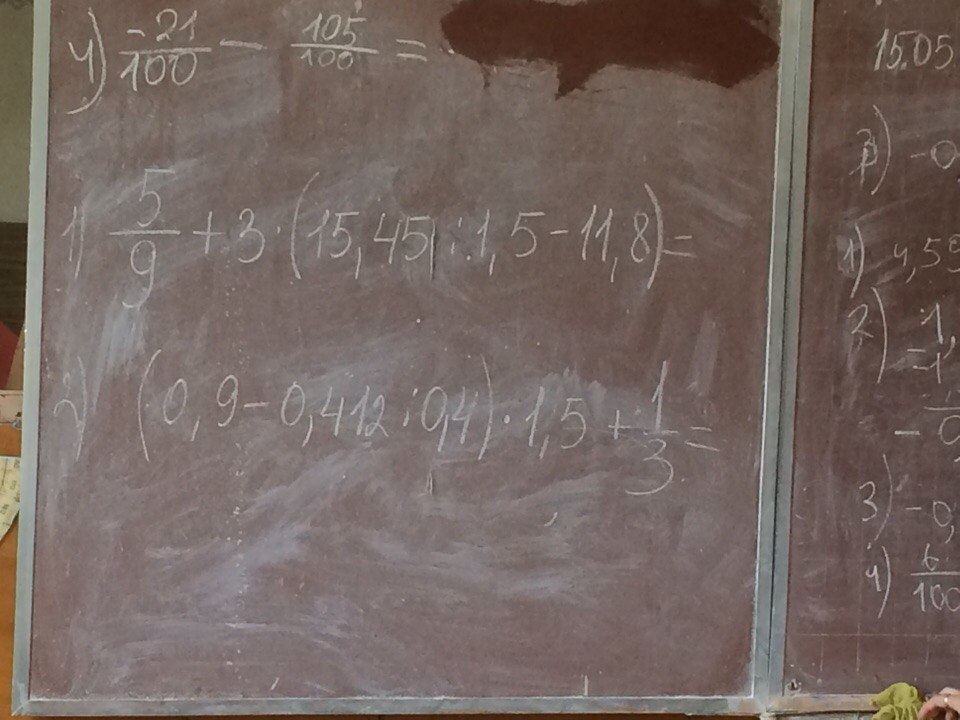 4) -21/100 - 105/100 =
1) 5/9 + 3 · (15,45 : 1,5 - 11,8) =
2) (0,9 - 0,412 : 0,4) · 1,5 + 1/3 =
15.05
1) 4,59
2) 1,
-1
- 0,
3) -0,
4) 6/100